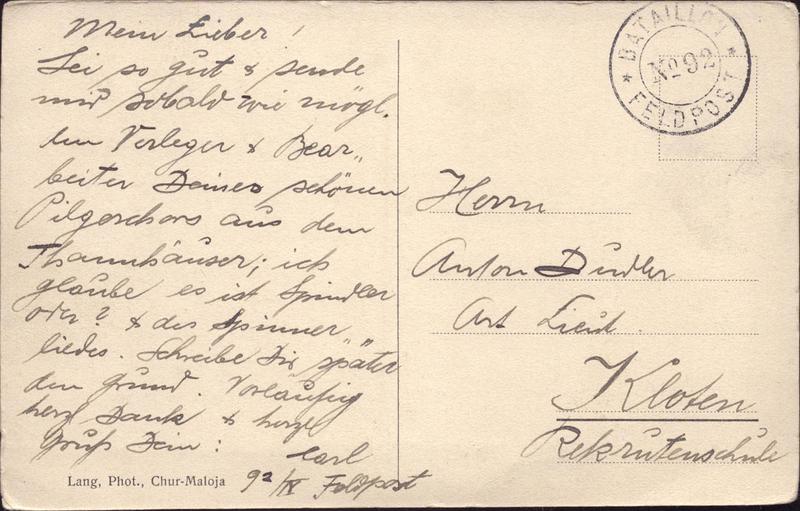 Mein Lieber!
Sei so gut & sende
mir sobald wie mögl.
den Verleger & Bear„
beiter Deines schönen
Pilgerchors aus dem
Thannhäuser; ich
glaube es ist Spindler
oder? & des Spinner
liedes. Schreibe Dir später
den Grund. Vorläufig
herzl Dank & herzl
Gruß Dein:
Carl
92/IV Feldpost
Lang, Phot., Chur-Maloja
BATAILLON
No 92
FELDPOST
Herrn
Anton Dudler
Art Lieut.
Kloten
Rekrutenschule